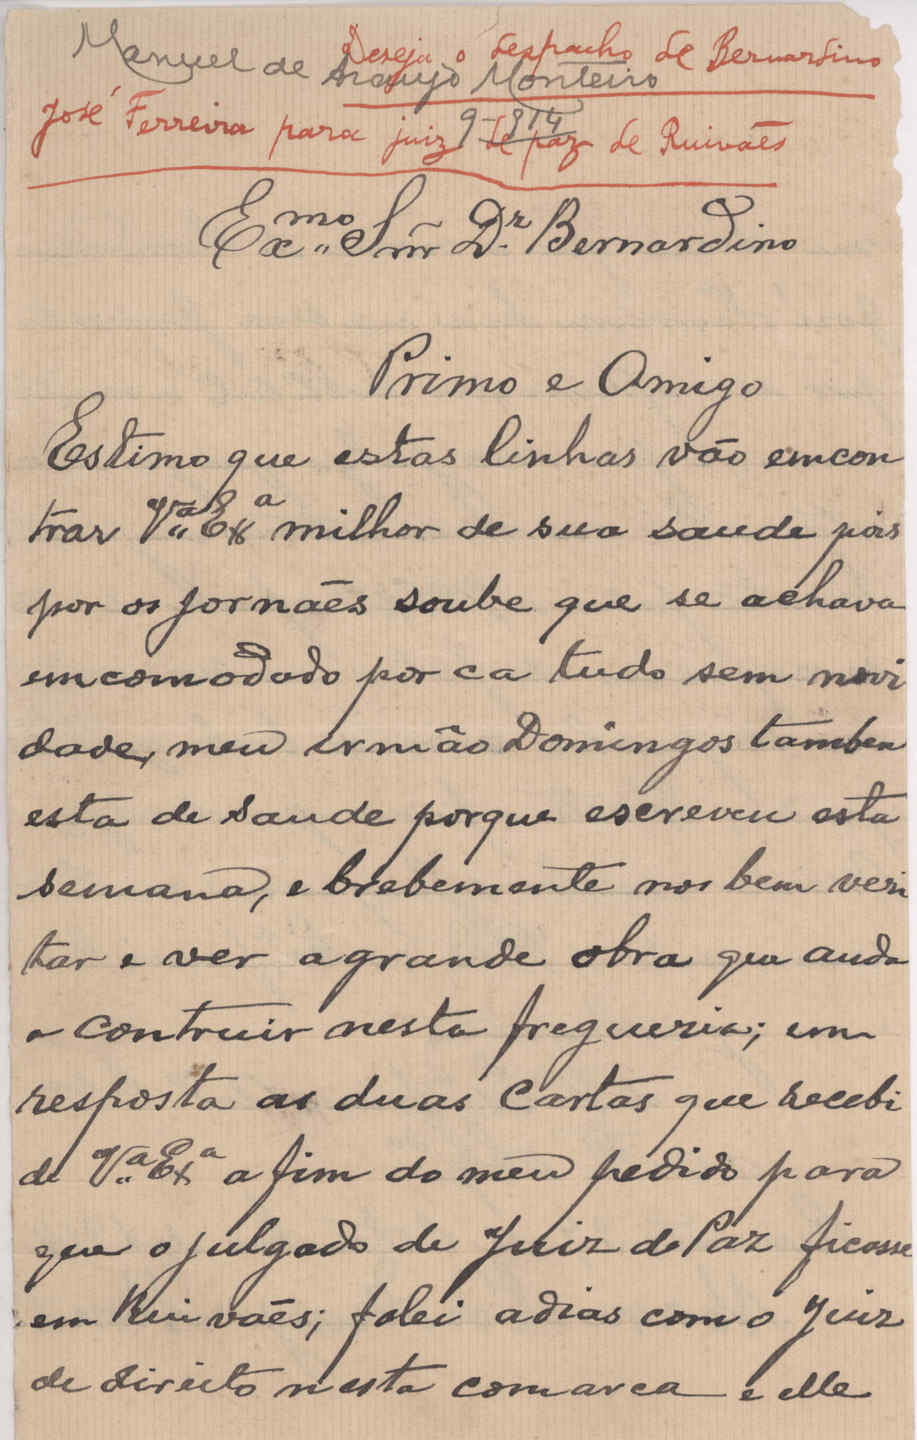 Manuel de Araujo Monteiro
9-914
Deseja o despacho de Bernardino
José Ferreira para juiz de paz de Ruivães
Exmo Snr Dr Bernardino
Primo e Amigo
Estimo que estas linhas vão emcon
trar Va Exa milhor de sua saude pois
por os jornães soube que se achava
emcomodado por ca tudo sem novi
dade, meu irmão Domingos tambem
esta de saude porque escreveu esta
semana, e brebemente nos bem vezi
tar e ver a grande obra que anda
a contruir nesta freguezia; em
resposta as duas Cartas que recebi
de Va Exa a fim do meu pedido para
que o julgado de Juiz de Paz ficasse
em Ruivães; falei adias com o Juiz
de direito nesta comarca e elle